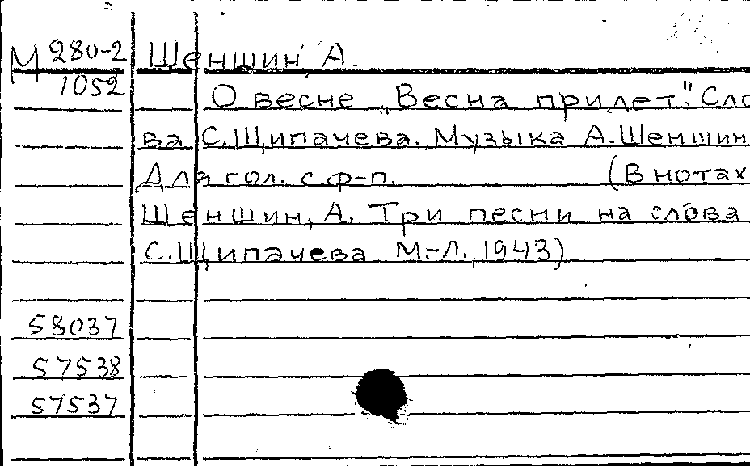 М 280-2 Шеншин, А.
1052
О весне „Весна придет". Сло
ва С. Щипачева. Музыка А. Шеншин
Для гол. с ф-п. (В нотах
Шеншин, А. Три песни на слова
С. Щипачева М-Л. 1943)
58037
57538
57537